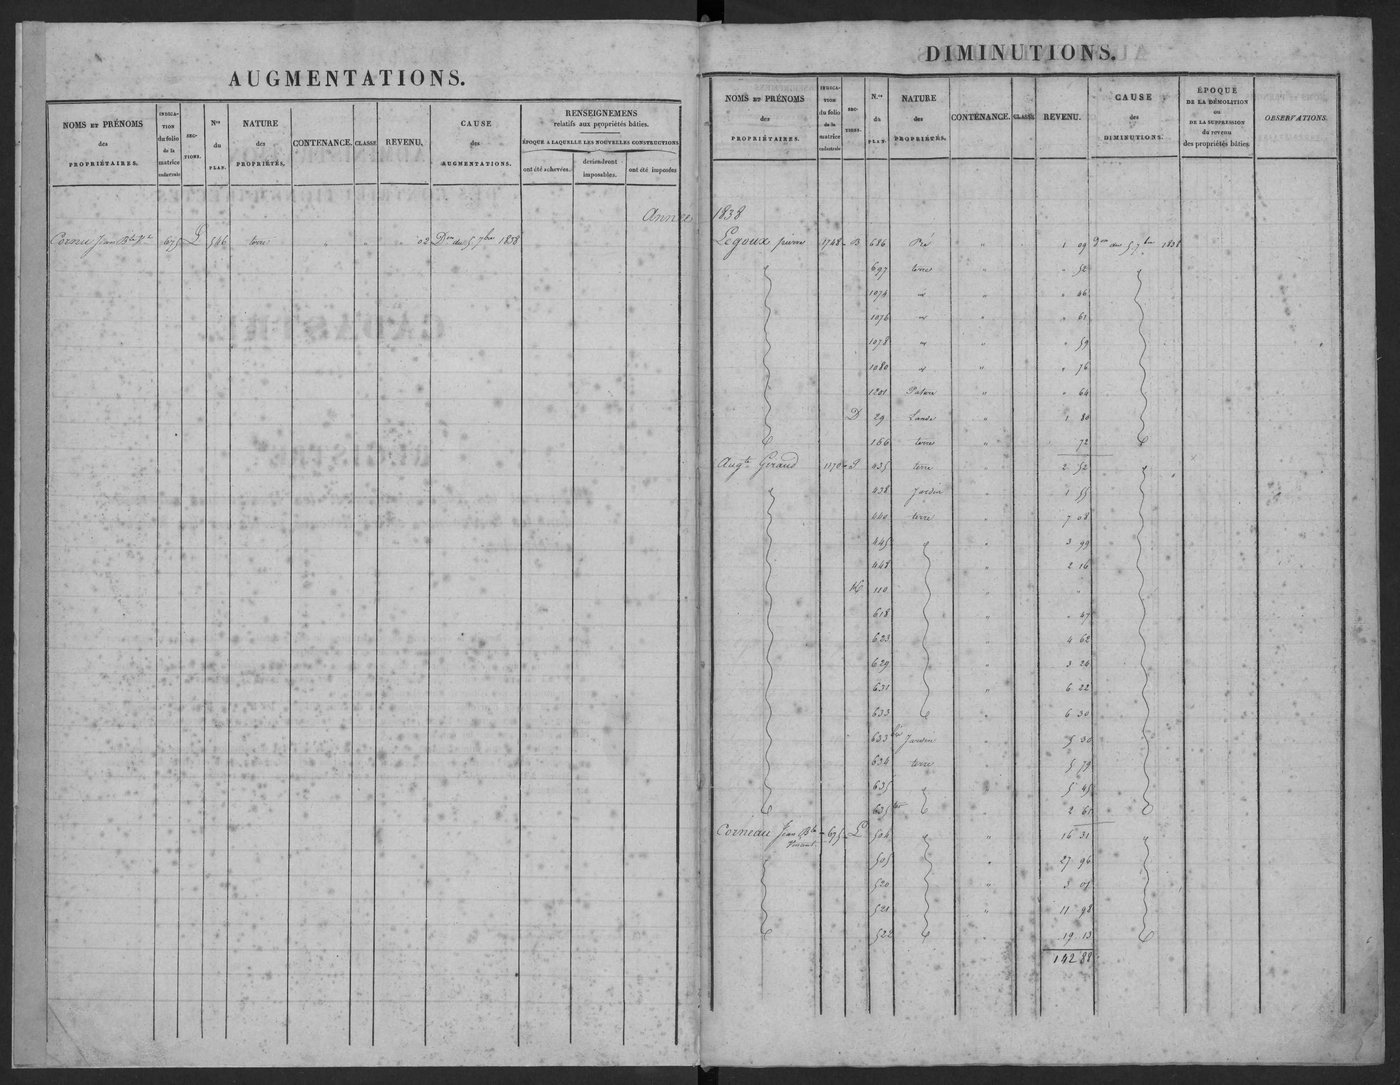 AUGMENTATIONS.
NOMS ET PRÉNOMS des PROPRIÉTAIRES.
INDICATION du folio de la matrice cadastrale
SECTIONS.
Nos du PLAN.
NATURE des PROPRIÉTÉS.
CONTENANCE.
CLASSE
REVENU.
CAUSE des AUGMENTATIONS.
RENSEIGNEMENS
relatifs aux propriétés bâties.
ÉPOQUE A LAQUELLE LES NOUVELLES CONSTRUCTIONS
ont été achevées.
deviendront imposables.
ont été imposées
Année
Cornu Jean Bte 675 L 546 terre " " " 02 Don du 5 7bre 1838
DIMINUTIONS.
NOMS ET PRÉNOMS des PROPRIÉTAIRES.
INDICATION du folio de la matrice cadastrale
SECTIONS.
N.os du PLAN.
NATURE des PROPRIÉTÉS.
CONTENANCE.
CLASSE.
REVENU.
CAUSE des DIMINUTIONS.
ÉPOQUE DE LA DÉMOLITION ou DE LA SUPPRESSION du revenu des propriétés bâties
OBSERVATIONS.
1838
Legoux pierre 1748 B 686 Pré " 1 09 Don du 5 7bre 1838
697 terre " " 52
1074 id " " 46
1076 id " " 61
1078 id " " 59
1080 id " " 76
1201 Pature " " 64
D 29 Lande " 1 80
166 terre " 72
Augte Giraud 1170 J 435 terre 2 52
438 Jardin " 1 55
440 terre " 7 08
445 " 3 99
448 " 2 16
K 110 " "
618 " " 47
623 " 4 62
629 " 3 24
631 " 6 22
633 " 6 30
633 bis Jardin " 5 30
634 terre " 5 79
635 5 45
635 ter 2 61
Corneau Jean Bte 675 L 504 " 16 31
Vincent
505 " 27 96
520 " 3 01
521 " 11 98
522 19 13
142 88